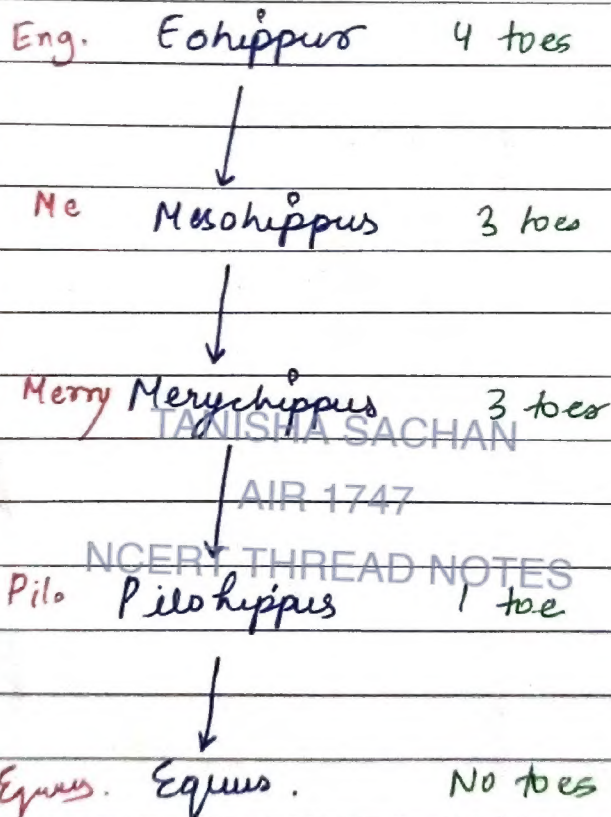 Eng. Eohippus 4 toes
Me Mesohippus 3 toes
Merry Merychippus 3 toes
TANISHA SACHAN
AIR 1747
NCERT THREAD NOTES
Pilo Pilohippus 1 toe
Equus. Equus. No toes